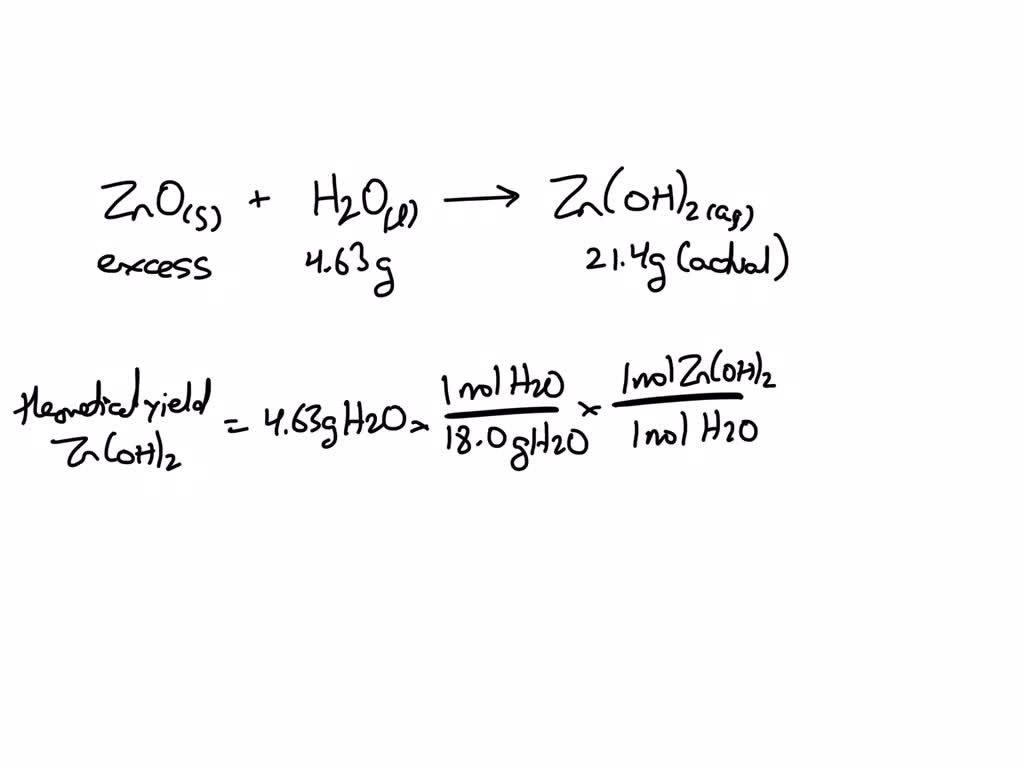 ZnO(s) + H2O(l) → Zn(OH)2(aq)
excess 4.63g 21.4g (actual)
theoretical yield Zn(OH)2 = 4.63g H2O × 1 mol H2O / 18.0 g H2O × 1 mol Zn(OH)2 / 1 mol H2O